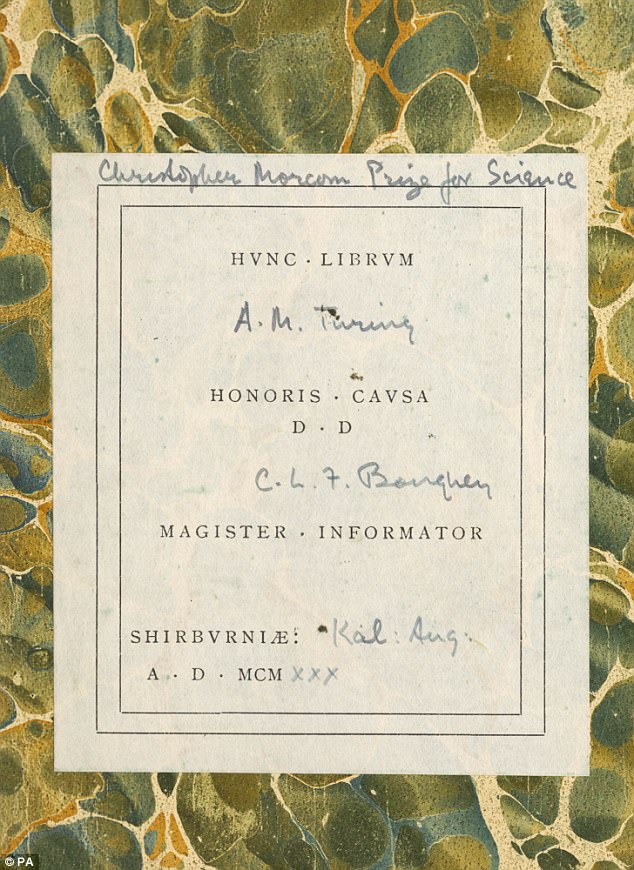 Christopher Morcom Prize for Science
HVNC · LIBRVM
A. M. Turing
HONORIS · CAVSA
D · D
C. L. F. Boughey
MAGISTER · INFORMATOR
SHIRBVRNIÆ: Kal: Aug:
A · D · MCMXXX
© PA